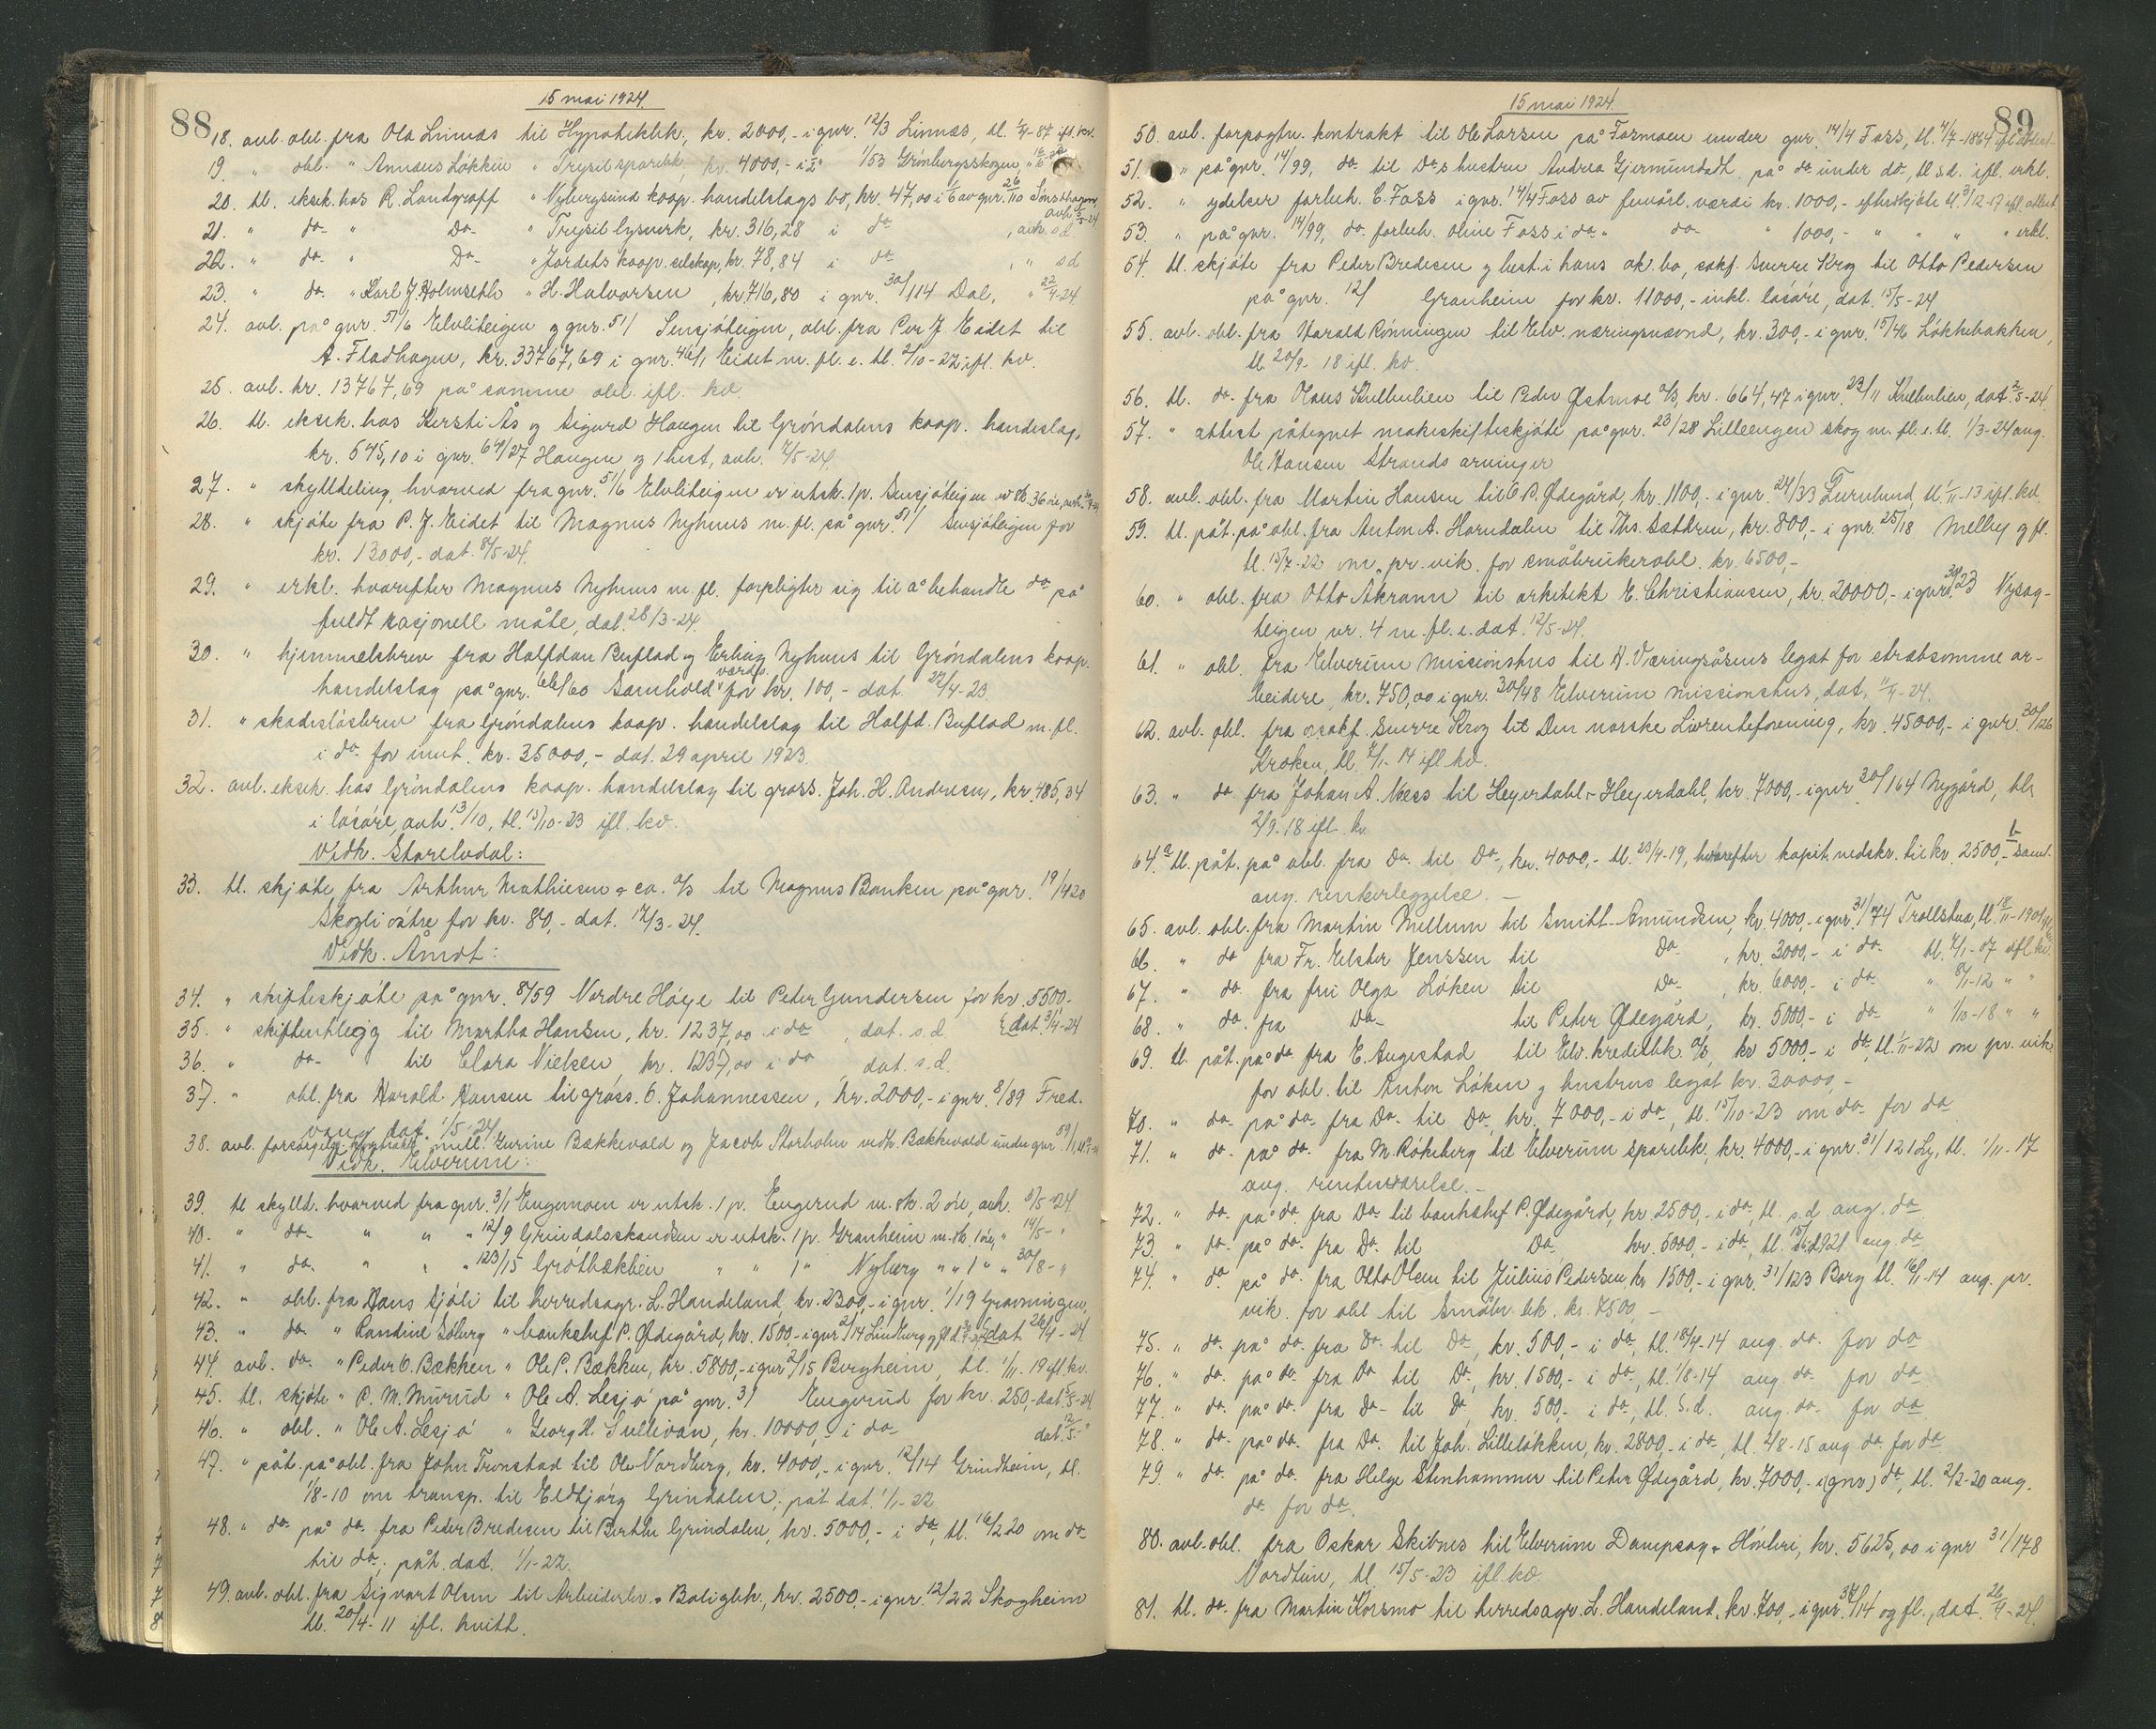 15 mai 1924.
88
18. avl. obl. fra Ola Linnæs til Hypotekbk, kr. 2000,- i gnr. 12/3 Linnæs, tl. ifl. kv.
19. " obl. " Annæus Løkken " Trysil sparebk, kr. 4000,- i 1/53 Grönbergsskogen, "
20. tl. eksek. hos R. Landgraff " Nybergsund koop. handelslags bo, kr. 47,00 i 1/6 av gnr. 26/110 avh. -24
21. " do " Do " Trysil lysverk, kr. 316,28 i do , avh. s d
22. " do " Do " Jordets koop. selskap, kr. 78,84 i do , " s d
23. " do " Karl J. Holmseth " H. Halvorsen , kr. 716,80 i gnr. 30/114 Dal, " 22/4-24
24. avl. på gnr. 51/6 Elvliteigen og gnr. 51/ Sensjöteigen, obl. fra Per J. Eidet til
A. Fladhagen, kr. 33767,69 i gnr. 46/1 Eidet m. fl. e. tl. 2/10-22 ifl. kv.
25. avl. kr. 13767,69 på samme obl. ifl. kv.
26. tl. eksek. hos Kersti Ås og Sigurd Haugen til Gröndalens koop. handelslag,
kr. 545,10 i gnr. 64/27 Haugen og 1 hest, avh. /5-24
27. " skylddeling, hvorved fra gnr. 51/6 Elvliteigen er utsk. 1 p. Sensjöteigen av sk. 36 öre, avh.
28. " skjöte fra P. J. Eidet til Magnus Nyhuus m. fl. på gnr. 51/ Sensjöteigen for
kr. 13000,- dat. 8/5-24.
29. " erkl. hvorefter Magnus Nyhuus m. fl. forpligter sig til å behandle do på
fuldt rasjonell måte, dat. 28/3-24.
30. " hjemmelsbrev fra Halfdan Buflad og Erling Nyhuus til Gröndalens koop.
handelslag på gnr. 66/60 Samhold for værdi kr. 100,- dat. 29/4-23
31. " skadeslösbrev fra Gröndalens koop. handelslag til Halfd. Buflad m. fl.
i do for innt. kr. 35000,- dat. 29 april 1923.
32. avl. eksek. hos Gröndalens koop. handelslag til gross. Joh. H. Andresen, kr. 485,34
i lösöre, avh. 13/10, tl. 15/10-23 ifl. kv.
Vedk. Storelvdal:
33. tl. skjöte fra Arthur Mathiesen & co. A/S til Magnus Banken på gnr. 19/420
Skogli östre for kr. 80,- dat. 17/3-24.
Vedk. Åmot:
34. " skifteskjöte på gnr. 8/59 Nordre Höye til Peter Gundersen for kr. 5500.-
35. " skifteutlegg til Martha Hansen, kr. 1237,00 i do , dat. s. d. dat. 3/4-24
36. " do til Clara Nielsen, kr. 1237,00 i do dat. s. d.
37. " obl. fra Harald Hansen til gross. O. Johannessen, kr. 2000,- i gnr. 8/89 Fred-
vang dat. 1/5-24
38. avl. mell. Gurine Bækkevold og Jacob Storholm vedk. Bækkevold under gnr.
Vedk. Elverum:
39. tl. skylld. hvorved fra gnr. 3/1 Engemoen er utsk. 1 p. Engerud m. sk. 2 öre, avh. /5-24
40. " do " " " 12/9 Grindalsskandsen er utsk. 1 p. Granheim m. sk. 1 öre, " 14/5- "
41. " do " " " 123/15 Gröthækkien " " 1 " Nyberg " " 1 " " 30/8- "
42. " obl. fra Hans Sjöli til herredsagr. L. Handeland, kr. 2300,- i gnr. 1/19 Gravningen,
43. " do " Randine Söberg " banksjef P. Ødegård, kr. 1500,- i gnr. 2/14 Lindberg og fl. dat. 26/4-24
44. avl. do " Peder O. Bækken " Ole P. Bækken, kr. 5800,- i gnr. 2/15 Bergheim, tl. 1/11-19 ifl. kv.
45. tl. skjöte " P. M. Murud " Ole A. Lesjö på gnr. 3/ Engerud for kr. 250,- dat. 5/5-24
46. " obl. " Ole A. Lesjö " Georg H. Sullivan, kr. 10000,- i do dat. 2/5- "
47. " påt. på obl. fra John Tronstad til Ole Nordberg, kr. 4000,- i gnr. 12/14 Grindheim, tl.
1/8-10 om transp. til Eldbjörg Grindalen, påt. dat. 1/1-22
48. " do på do fra Peder Bredesen til Berthe Grindalen, kr. 5000,- i do, tl. 16/2 20 om do
til do, påt. dat. 1/1-22.
49. avl. obl. fra Sigvart Olsen til Arbeiderbr. & Boligbk., kr. 2500,- i gnr. 12/22 Skogheim
tl. 20/4-11 ifl. kvitt.
15 mai 1924.
89
50. avl. forpagtn. kontrakt til Ole Larsen på Formoen under gnr. 14/4 Foss, tl. 4/7-1864 ifl. attest.
51. " på gnr. 14/99, do til Do's hustru Andrea Gjermundsdt. på do under do, tl. s.d. ifl. erkl.
52. " ydelser forbeh. E. Foss i gnr. 14/4 Foss av femårl. værdi kr. 1000,- efter skjöte tl. 3/12-17 ifl. attest
53. " på gnr. 14/99, do forbeh. Oline Foss i do " do " 1000,- " " " " erkl.
54. tl. skjöte fra Peder Bredesen og best. i hans ok. bo, sakf. Sverre Krog til Otto Pedersen
på gnr. 12/ Granheim for kr. 11000,- inkl. lösöre, dat. 15/5-24
55. avl. obl. fra Harald Rönningen til Elv. næringsnevnd, kr. 300,- i gnr. 15/46 Løkkebakken,
tl. 20/9-18 ifl. kv.
56. tl. do fra Olaus Kulbulien til Peder Østmoe A/S, kr. 664,47 i gnr. 23/11 Kulbulien, dat. 2/5-24.
57. " attest påtegnet makeskifteskjöte på gnr. 23/28 Lilleengen skog m. fl. e. tl. 1/3-24 ang.
Ole Hansen Strands arvinger
58. avl. obl. fra Martin Hansen til O. P. Ødegård, kr. 1100,- i gnr. 24/33 Furulund, tl. 1/11-13 ifl. kv.
59. tl. påt. på obl. fra Anton A. Horndalen til Ths. Sættren, kr. 800,- i gnr. 25/18 Melby og fl.
tl. 15/7-22 om pr. vik. for småbrukerobl. kr. 6500,-
60. " obl. fra Otto Akrann til arkitekt E. Christiansen, kr. 20000,- i gnr. 30/23 Nysag-
teigen nr. 4 m. fl. e. dat. 12/5-24.
61. " obl. fra Elverum Missionshus til H. Væringsåsens legat for stræbsomme ar-
beidere, kr. 750,00 i gnr. 30/48 Elverum missionshus, dat. 11/4-24.
62. avl. obl. fra o.r.sakf. Sverre Krog til Den norske Livrenteforening, kr. 45000,- i gnr. 30/126
Kroken, tl. 2/1-14 ifl. kv.
63. " do fra Johan A. Næss til Heyerdahl-Heyerdahl, kr. 7000,- i gnr. 30/164 Nygård, tl.
2/9-18 ifl. kv.
64. a tl. påt. på obl. fra Do. til Do, kr. 4000,- tl. 23/4-19, hvorefter kapit. nedskr. til kr. 2500,- b saml.
ang. renterleggelse.-
65. avl. obl. fra Martin Mellum til Smith-Amundsen, kr. 4000,- i gnr. 31/74 Trollstua, tl. 18/11-1901
66. " do fra Fr. Elster Jenssen til Do , kr. 3000,- i do tl. 2/1-07 ifl. kv.
67. " do fra fru Olga Löken til Do , kr. 6000,- i do " 8/1-12 " "
68. " do fra Do til Peter Ødegård, kr. 5000,- i do " 1/10-18 " "
69. tl. påt. på do fra E. Augestad til Elv. kreditbk. A/S, kr. 5000,- i do, tl. 1/11-22 om pr. vik.
for obl. til Anton Löken og hustrus legat kr. 30000,-
70. " do på do fra Do til Do, kr. 7000,- i do, tl. 15/10-23 om do for do
71. " do på do fra M. Rökeberg til Elverum sparebk, kr. 4000,- i gnr. 31/121 Ly, tl. 1/11-17
ang. rentesvarelse.-
72. " do på do fra Do til banksjef P. Ødegård, kr. 2500,- i do, tl. s.d. ang. do
73. " do på do fra Do til Do kr. 5000,- i do tl. 1921 ang. do
74. " do på do fra Otto Olsen til Julius Pedersen kr. 1500,- i gnr. 31/123 Borg tl. 16/1-14 ang. pr.
vik. for obl. til Småbr. bk. kr. 7500,-
75. " do på do fra Do til Do, kr. 500,- i do, tl. 18/4-14 ang. do for do
76. " do på do fra Do til Do, kr. 1500,- i do, tl. 1/8-14 ang. do for do
77. " do på do fra Do til Do, kr. 500,- i do, tl. s.d. ang. do for do
78. " do på do fra Do til Joh. Lillelökken, kr. 2800,- i do, tl. 4/8-15 ang. do for do
79 " do på do fra Helge Stenhammer til Peter Ødegård, kr. 7000,- i (gnr) do, tl. 2/2-20 ang.
do for do.
80. avl. obl. fra Oskar Skibnes til Elverum Dampsag & Hövleri, kr. 5625,00 i gnr. 31/178
Nordtun, tl. 15/5-23 ifl. kv.
81. tl. do fra Martin Korsmo til herredsagr. L. Handeland, kr. 700,- i gnr. 34/14 og fl., dat. 26/4-24.